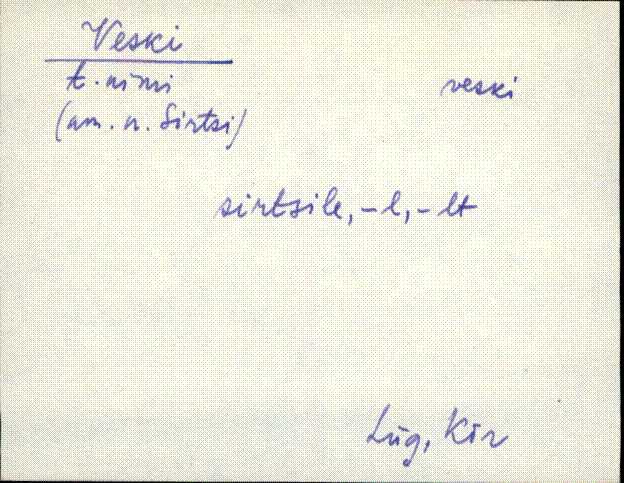 Veski
t. nimi veski
(am. n. Sirtsi)
sirtsile, -l, -lt
Lüg, Kir